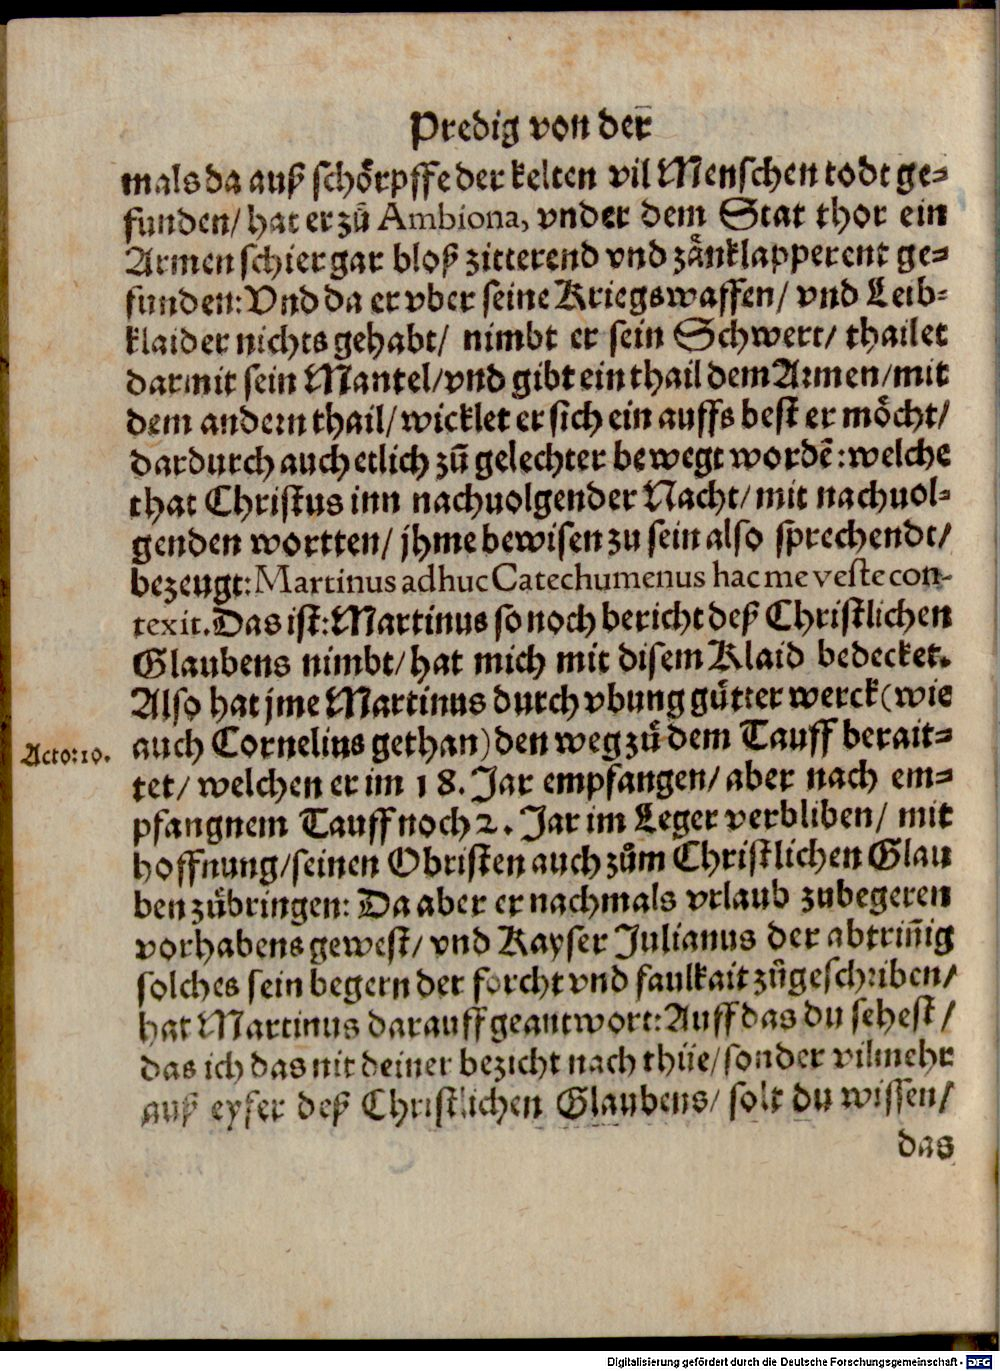 Predig von der
mals da auß schörpffe der kelten vil Menschen todt ge-
funden/ hat er zů Ambiona, vnder dem Stat thor ein
Armen schier gar bloß zitterend vnd zänklapperent ge-
funden: Vnd da er vber seine Kriegswaffen/ vnd Leib-
klaider nichts gehabt/ nimbt er sein Schwert/ thailet
darmit sein Mantel/ vnd gibt ein thail dem Armen/ mit
dem andern thail/ wicklet er sich ein auffs best er möcht/
dardurch auch etlich zů gelechter bewegt wordē: welche
that Christus inn nachuolgender Nacht/ mit nachuol-
genden wortten/ jhme bewisen zu sein also sprechendt/
bezeugt: Martinus adhuc Catechumenus hac me veste con-
texit. Das ist: Martinus so noch bericht deß Christlichen
Glaubens nimbt/ hat mich mit disem Klaid bedecket.
Also hat jme Martinus durch vbung gůtter werck (wie
Acto: 10. auch Cornelius gethan) den weg zů dem Tauff berait-
tet/ welchen er im 18. Jar empfangen/ aber nach em-
pfangnem Tauff noch 2. Jar im Leger verbliben/ mit
hoffnung/ seinen Obristen auch zům Christlichen Glau
ben zůbringen: Da aber er nachmals vrlaub zubegeren
vorhabens gewest/ vnd Kayser Julianus der abtriñig
solches sein begern der forcht vnd faulkait zůgeschriben/
hat Martinus darauff geantwort: Auff das du sehest/
das ich das nit deiner bezicht nach thüe/ sonder vilmehr
auß eyfer deß Christlichen Glaubens/ solt du wissen/
das
Digitalisierung gefördert durch die Deutsche Forschungsgemeinschaft - DFG